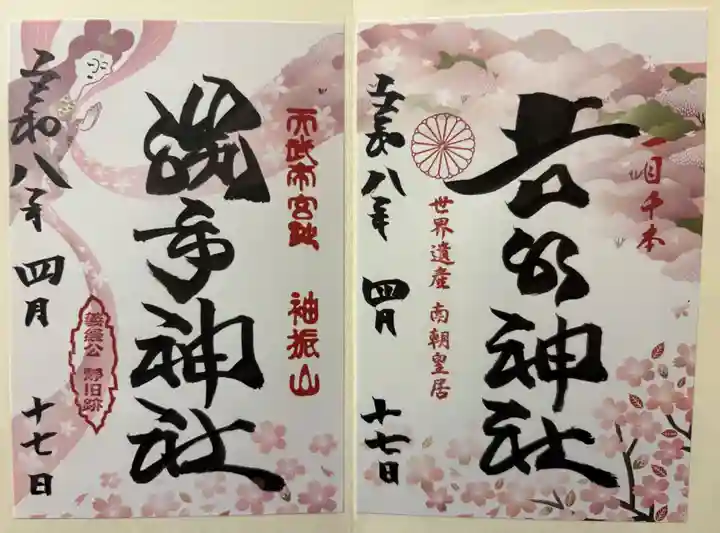 一目千本
吉水神社
世界遺産 南朝皇居
令和八年 四月 十七日
天武帝宮趾 袖振山
勝手神社
義經公 静旧跡
令和八年 四月 十七日